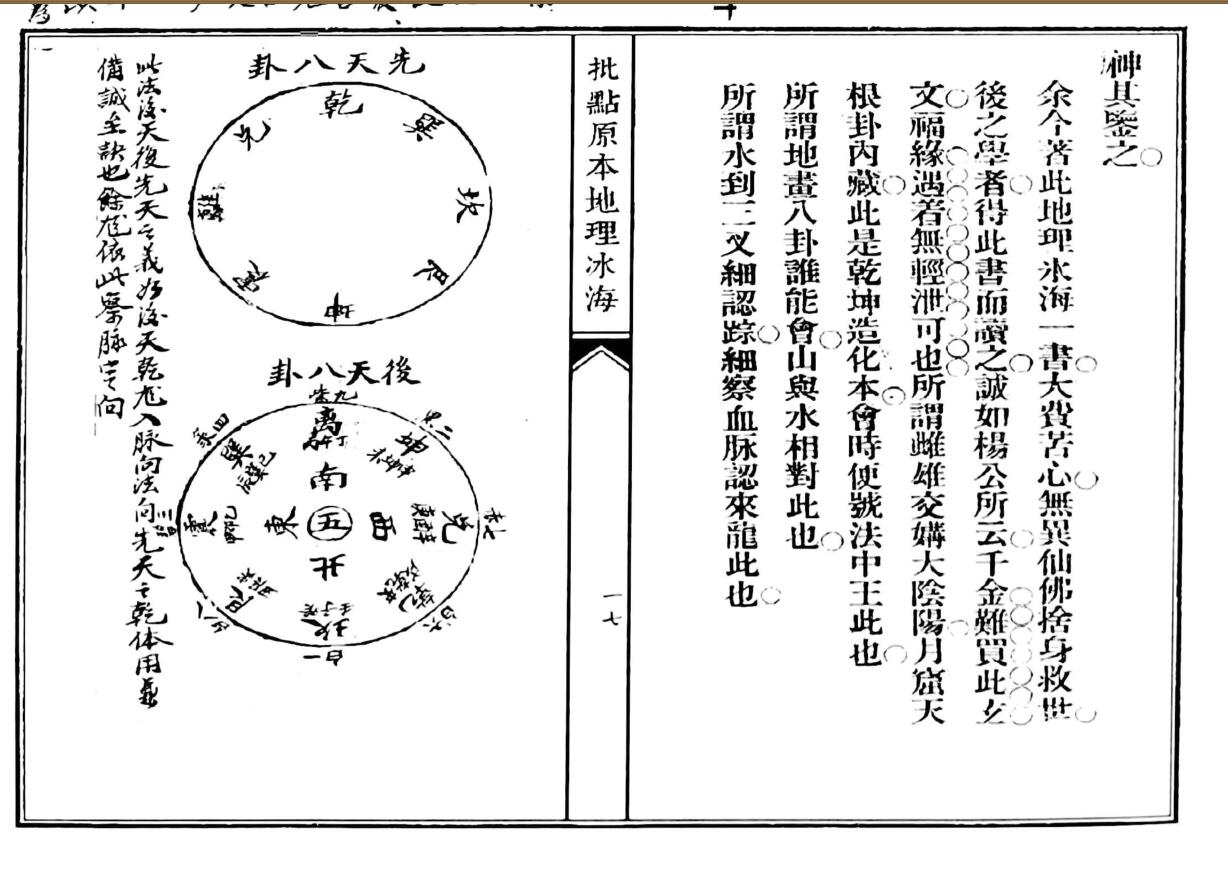 神其鑒之
余今著此地理氷海一書大費苦心無異仙佛捨身救世
後之學者得此書而讀之誠如楊公所云千金難買此玄
文福緣遇着無輕泄可也所謂雌雄交媾大陰陽月窟天
根卦內藏此是乾坤造化本會時便號法中王此也
所謂地畫八卦誰能會山與水相對此也
所謂水到三叉細認踪細察血脉認來龍此也
批點原本地理冰海
一七
先天八卦
乾
巽
坎
艮
坤
震
離
兌
後天八卦
九紫
離
丙午丁
二黑
坤
未坤申
七赤
兌
庚酉辛
六白
乾
戌乾亥
一白
坎
壬子癸
八白
艮
丑艮寅
三碧
震
甲卯乙
四綠
巽
辰巽巳
南
東
五
西
北
此法後天後先天之義如後天乾尨入脉向法向先天之乾体用兼
備誠至訣也餘尨依此察脉定向